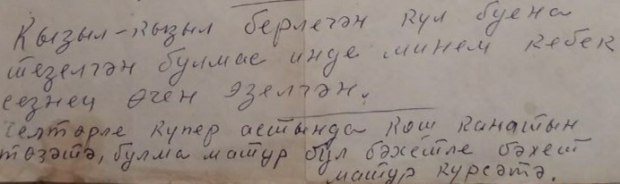 Кызыл-кызыл берлегән кул буена
тезелгән булмас инде минем кебек
сезнең өчен өзелгән.
Челтәрле күпер астында кош канатын
төзәтә, булма матур бул бәхетле бәхет
матур күрсәтә.